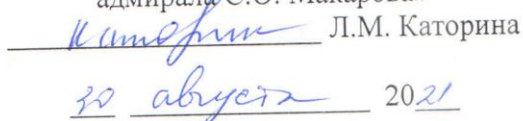 адмирала С.О. Макарова
Каторин Л.М. Каторина
30 августа 2021